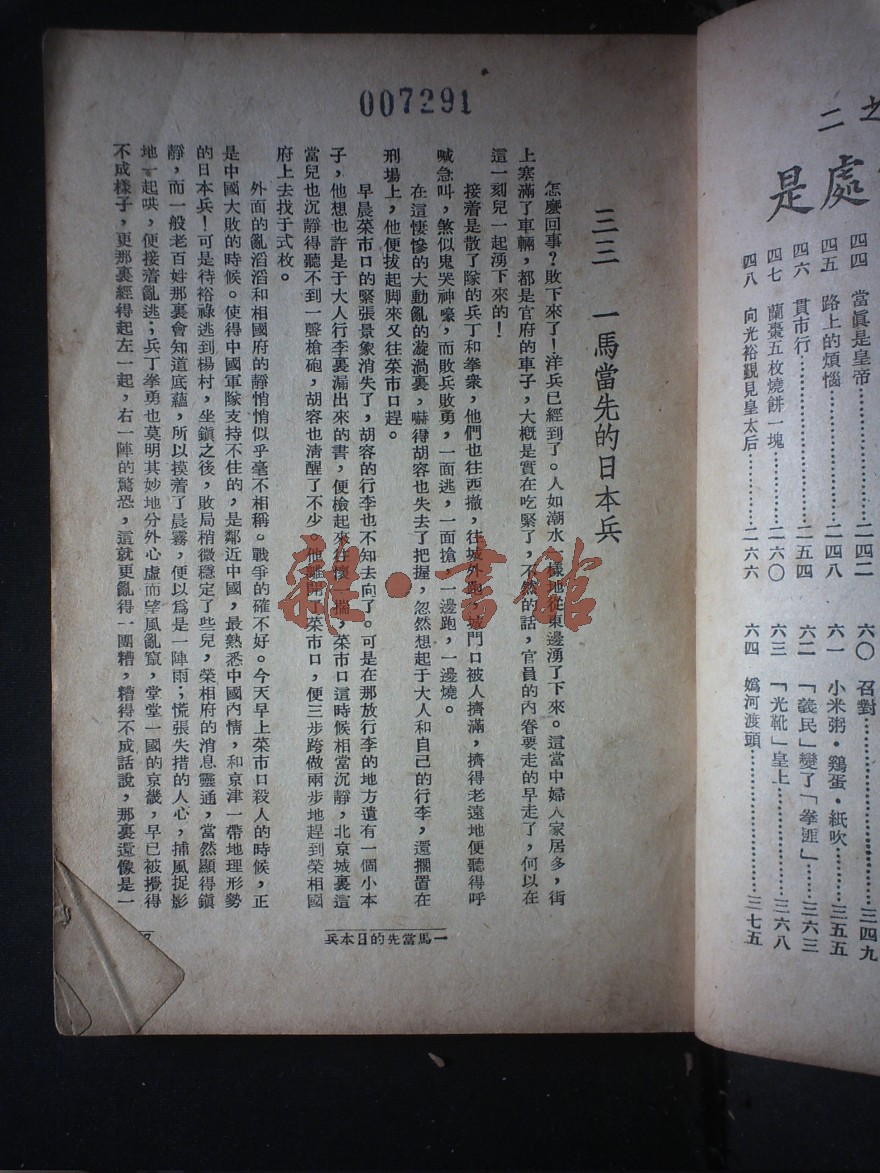 007291
之二
處是
四四　當眞是皇帝…………二四二
四五　路上的煩惱…………二四八
四六　貫市行…………二五四
四七　蘭棗五枚燒餅一塊…………二六〇
四八　向光裕覲見皇太后…………二六六
六〇　召對…………三四九
六一　小米粥・鷄蛋・紙吹…………三五五
六二　「義民」變了「拳匪」…………三六三
六三　「光靴」皇上…………三六八
六四　嬀河渡頭…………三七五
三三　一馬當先的日本兵
怎麼回事？敗下來了！洋兵已經到了。人如潮水一樣地從東邊湧了下來。這當中婦人家居多，街
上塞滿了車輛，都是官府的車子，大概是實在吃緊了，不然的話，官員的內眷要走的早走了，何以在
這一刻兒一起湧下來的！
接着是散了隊的兵丁和拳衆，他們也往西撤，往城外跑，城門口被人擠滿，擠得老遠地便聽得呼
喊急叫，煞似鬼哭神嚎，而敗兵敗勇，一面逃，一面搶，一邊跑，一邊燒。
在這悽慘的大動亂的漩渦裏，嚇得胡容也失去了把握，忽然想起于大人和自己的行李，還擱置在
刑場上，他便拔起脚來又往菜市口趕。
早晨菜市口的緊張景象消失了，胡容的行李也不知去向了。可是在那放行李的地方遺有一個小本
子，他想也許是于大人行李裏漏出來的書，便檢起來往懷一揣，菜市口這時候相當沉靜，北京城裏這
當兒也沉靜得聽不到一聲槍砲，胡容也清醒了不少。他離開了菜市口，便三步跨做兩步地趕到榮相國
府上去找于式枚。
外面的亂滔滔和相國府的靜悄悄似乎毫不相稱。戰爭的確不好。今天早上菜市口殺人的時候，正
是中國大敗的時候。使得中國軍隊支持不住的，是鄰近中國，最熟悉中國內情，和京津一帶地理形勢
的日本兵！可是待裕祿逃到楊村，坐鎭之後，敗局稍微穩定了些兒，榮相府的消息靈通，當然顯得鎭
靜，而一般老百姓那裏會知道底蘊，所以摸着了晨霧，便以爲是一陣雨；慌張失措的人心，捕風捉影
地一起哄，便接着亂逃；兵丁拳勇也莫明其妙地分外心虛而望風亂竄，堂堂一國的京畿，早已被攪得
不成樣子，更那裏經得起左一起，右一陣的驚恐，這就更亂得一團糟，糟得不成話說，那裏還像是一
一馬當先的日本兵
雜・書館